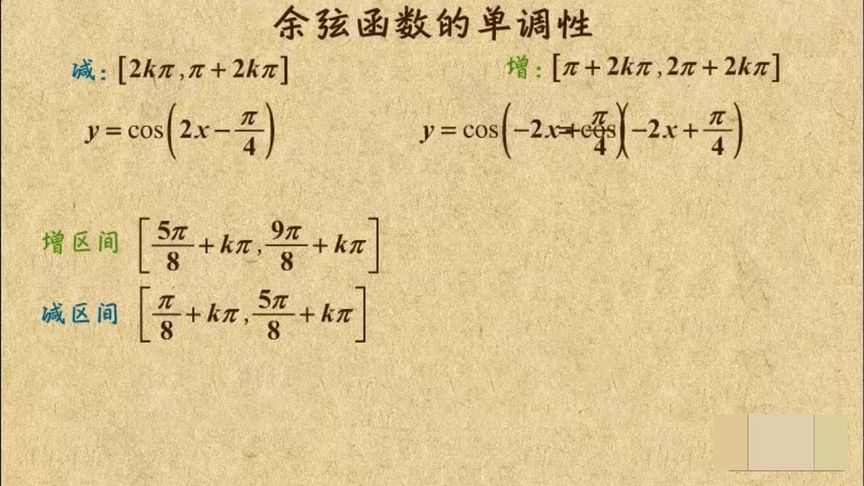 余弦函数的单调性
减: [2kπ, π+2kπ] 增: [π+2kπ, 2π+2kπ]
y=cos(2x-π/4) y=cos(-2x+π/4)(-2x+π/4)
增区间 [5π/8+kπ, 9π/8+kπ]
减区间 [π/8+kπ, 5π/8+kπ]